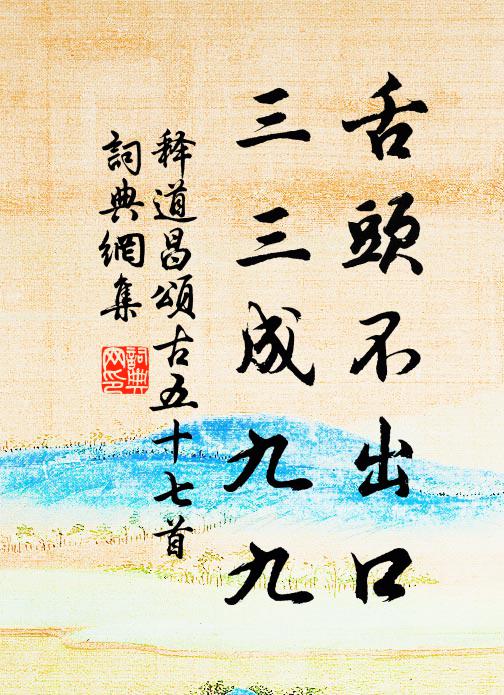 舌頭不出口
三三成九九
释道昌頌古五十七首
詞典網集
詞典
网印